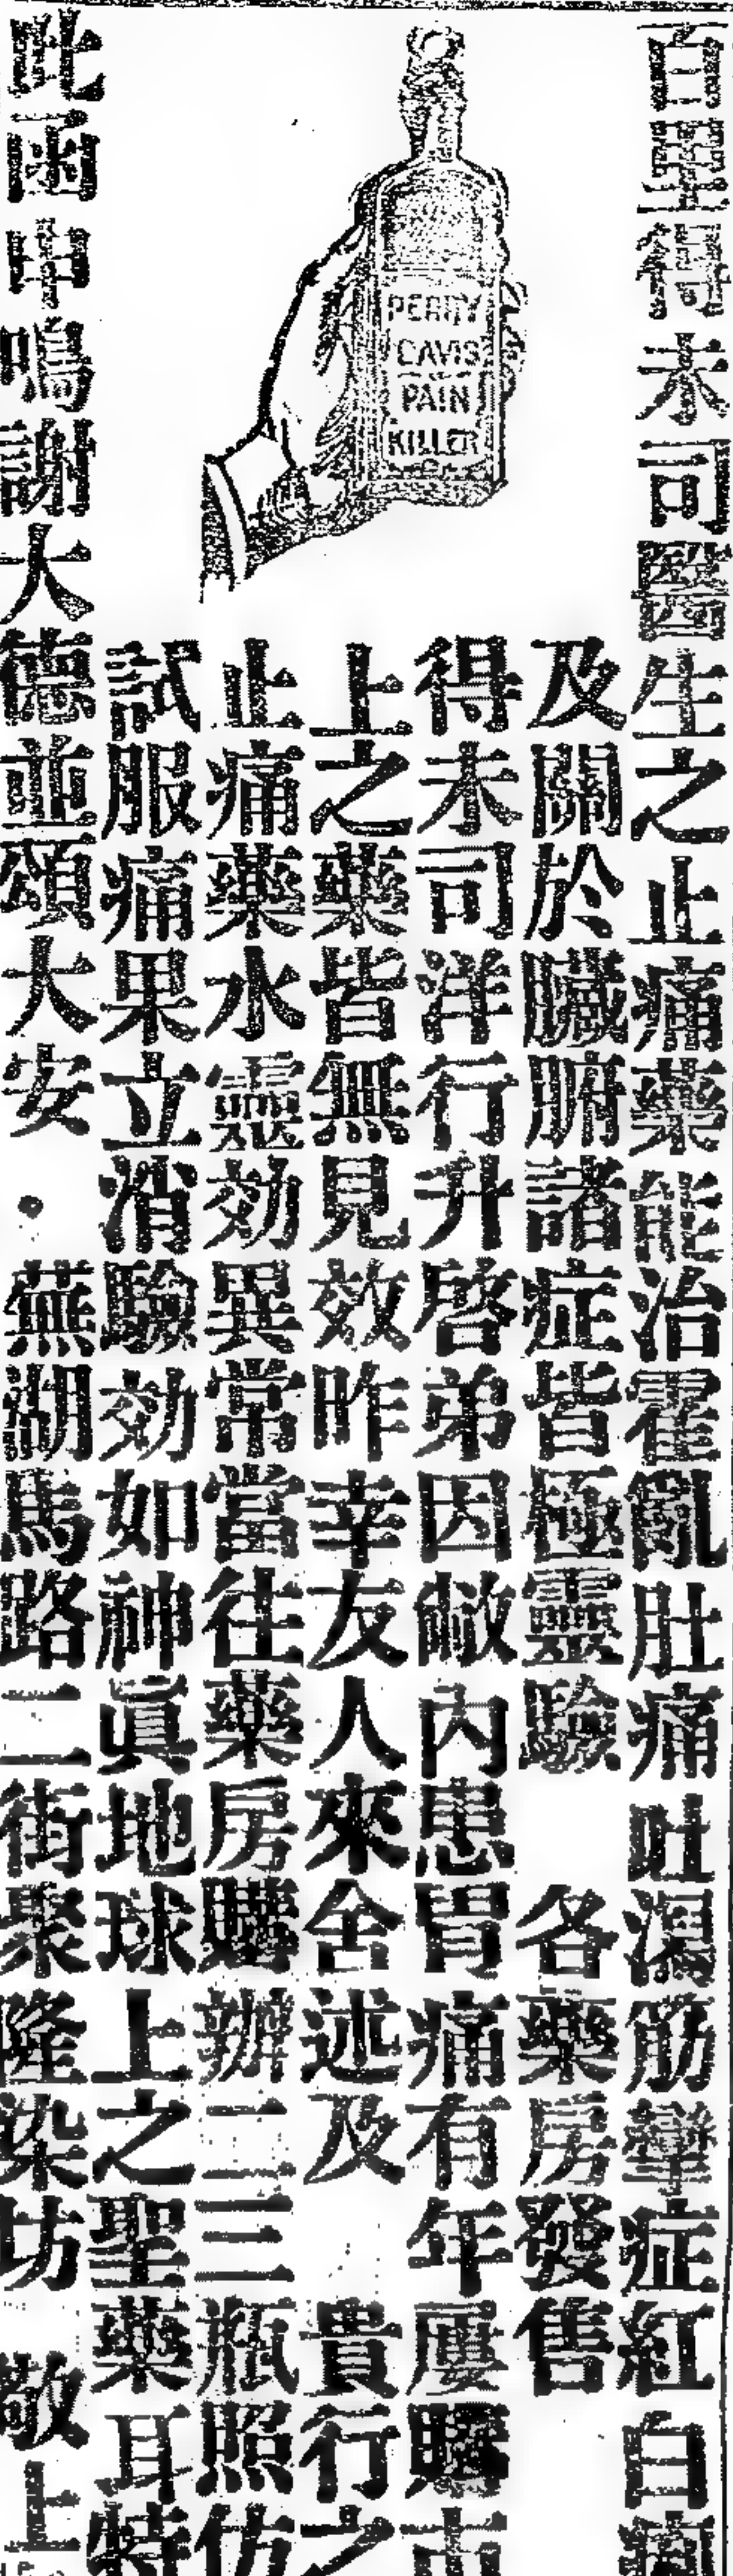 百里得未司醫生之止痛藥能治霍亂肚痛吐瀉筋攣症紅白
及關於臟腑諸症皆極靈驗　各藥房發售
得未司洋行升啓弟因敝內患胃痛有年屢購市
上之藥皆無見效昨幸友人來舍述及　貴行之
止痛藥水靈効異常當往藥房購辦二三瓶照仿
試服痛果立消驗効如神眞地球上之聖藥耳特
此函申鳴謝大德並頌大安・蕪湖馬路二街聚隆染坊　敬上
PERRY
DAVIS
PAIN
KILLER